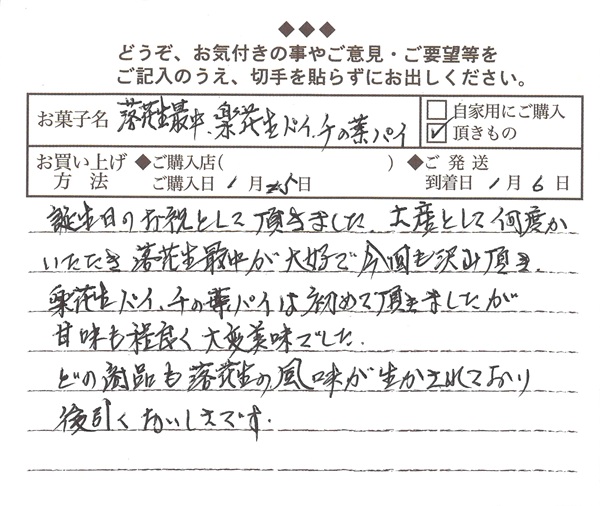 ◆◆◆
どうぞ、お気付きの事やご意見・ご要望等を
ご記入のうえ、切手を貼らずにお出しください。
お菓子名 落花生最中、楽花生パイ、千の葉パイ
□ 自家用にご購入
☑ 頂きもの
お買い上げ方法 ◆ご購入店( )
ご購入日 1月 5日
◆ご発送
到着日 1月6日
誕生日のお祝として頂きました。土産として何度か
いただき落花生最中が大好で今回も沢山頂き、
楽花生パイ、千の葉パイは初めて頂きましたが
甘味も程良く大変美味でした。
どの商品も落花生の風味が生かされており
後引くおいしさです。